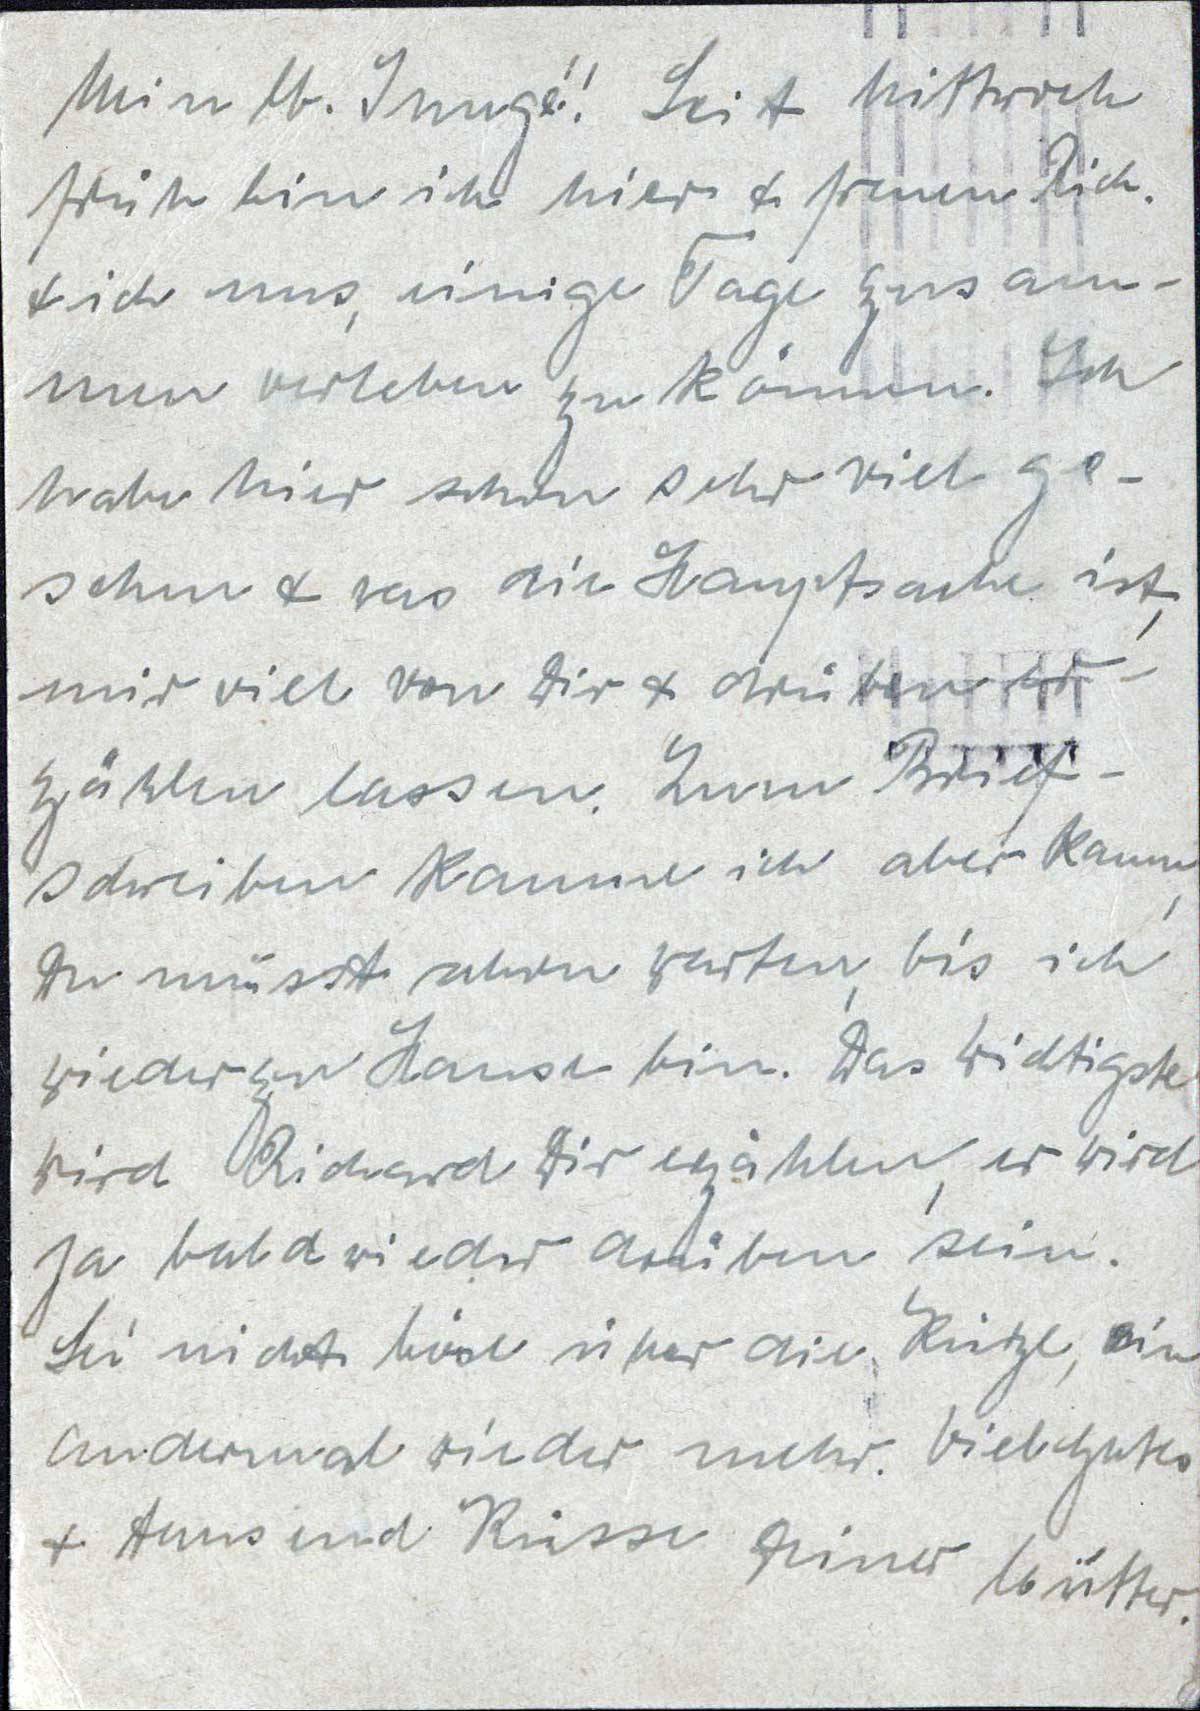 Mein lb. Junge! Seit Mittwoch
früh bin ich hier & freuen Rich.
& ich uns, einige Tage zusam-
men verleben zu können. Ich
habe hier schon sehr viel ge-
sehen & was die Hauptsache ist,
mir viel von Dir & drüben er-
zählen lassen. Zum Brief-
schreiben komme ich aber kaum,
Du müsst schon warten, bis ich
wieder zu Hause bin. Das Wichtigste
wird Richard Dir erzählen, er wird
ja bald wieder drüben sein.
Sei nicht böse über die Kürze, ein
andermal wieder mehr. Viel Gutes
& tausend Küsse Deiner Mutter.